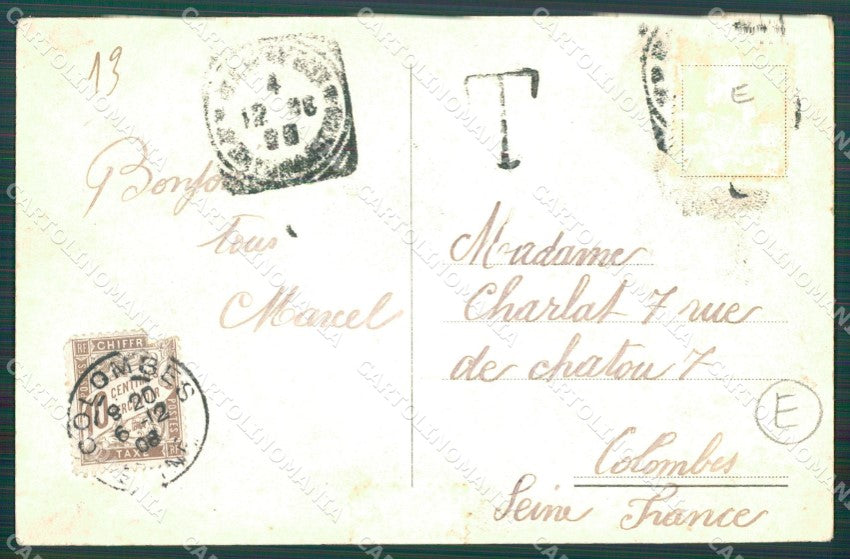 13
4
12 08
T
E
Bonjour
tous
Marcel
Madame
Charlat 7 rue
de chatou 7
Colombes
Seine France
E
RF CHIFFR
CENTIM
TAXE
COLOMBES
8 20
6 - 12
08
CARTOLINOMANIA